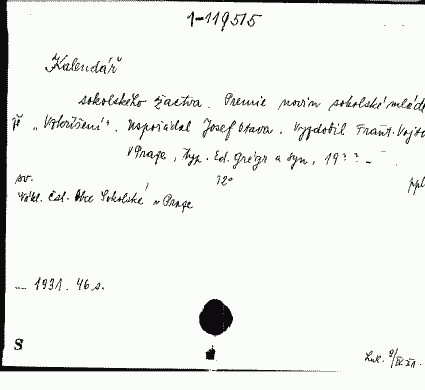 1-11951/5
Kalendář
sokolského žactva. Premie novin sokolské mláde
že „Vzkříšení". Uspořádal Josef Otava. Vyzdobil Frant. Vojto
V Praze, typ. Ed. Grégr a syn, 19?? -
sv. 12° ppl
Nákl. Čsl. Obce Sokolské v Praze
.... 1931. 46 s.
S